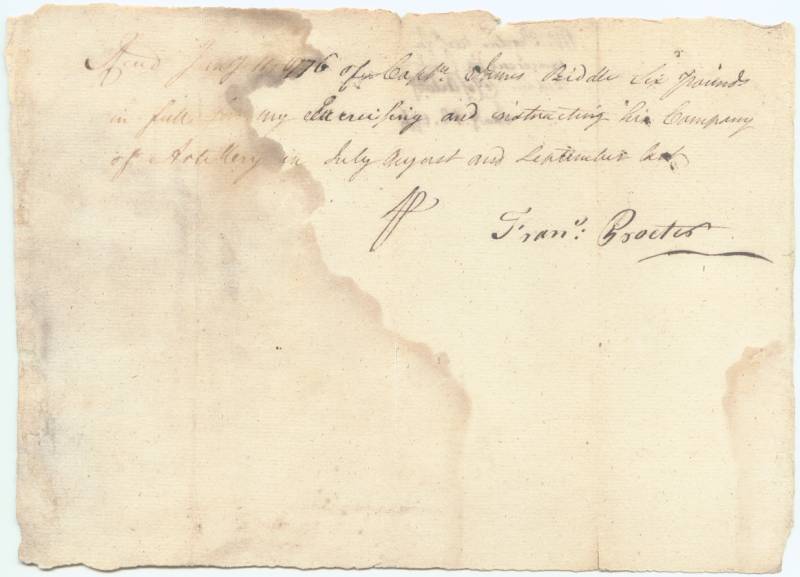 Recd Jany 1776 of Captn. James Biddle Six Pounds
in full for my Exercising and instructing his Company
of Artillery in July August and September last
Frans: Procter